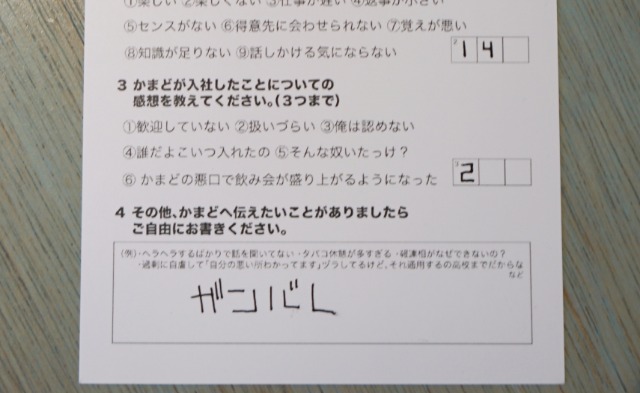 ①楽しい ②楽しくない ③仕事が遅い ④返事が小さい
⑤センスがない ⑥得意先に会わせられない ⑦覚えが悪い
⑧知識が足りない ⑨話しかける気にならない
2 1 4
3 かまどが入社したことについての
感想を教えてください。(3つまで)
①歓迎していない ②扱いづらい ③俺は認めない
④誰だよこいつ入れたの ⑤そんな奴いたっけ？
⑥ かまどの悪口で飲み会が盛り上がるようになった
3 2
4 その他、かまどへ伝えたいことがありましたら
ご自由にお書きください。
(例)・ヘラヘラするばかりで話を聞いてない ・タバコ休憩が多すぎる ・報連相がなぜできないの？
・過剰に自虐して「自分の悪い所わかってます」ヅラしてるけど、それ通用するの高校までだからな
など
ガンバレ